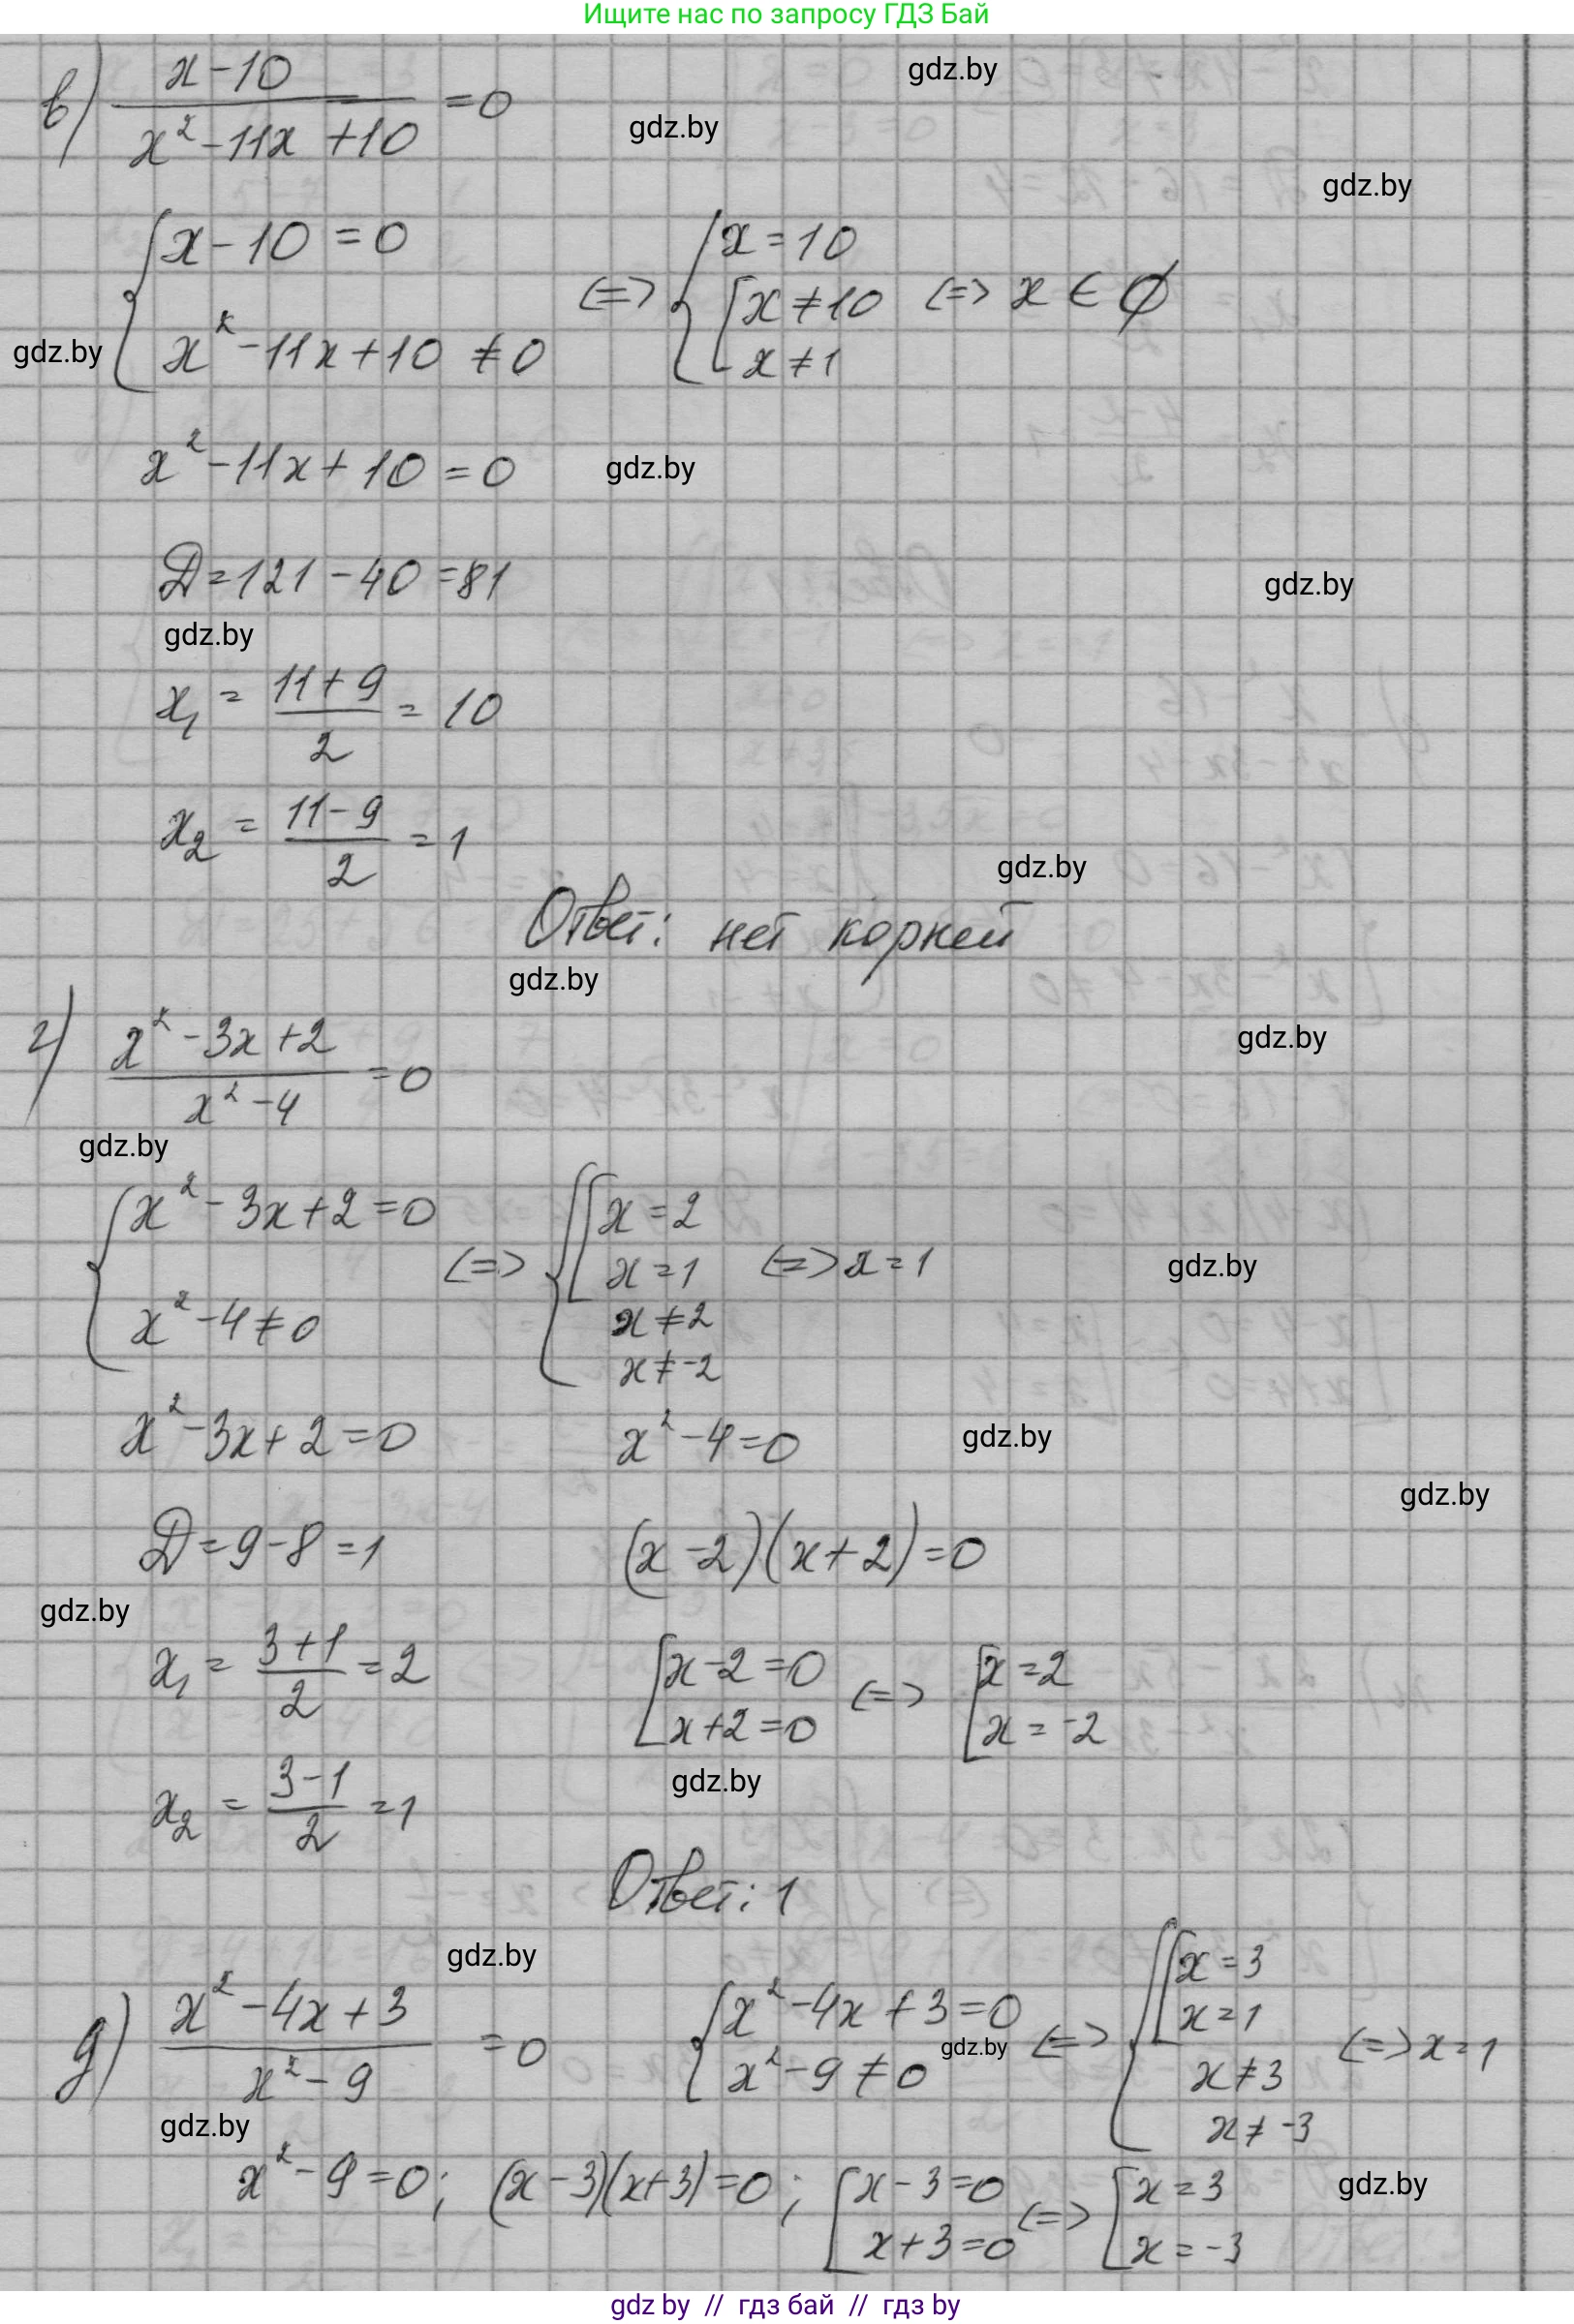 Ищите нас по запросу ГДЗ Бай
в) (x-10)/(x²-11x+10) =0
gdz.by
gdz.by
gdz.by
{x-10=0 <=> {x=10
x²-11x+10≠0 [x≠10 x≠1 <=> x∈∅
gdz.by
x²-11x+10=0
gdz.by
D=121-40=81
gdz.by
gdz.by
x₁ = (11+9)/2 = 10
x₂ = (11-9)/2 = 1
gdz.by
Ответ: нет корней
gdz.by
г) (x²-3x+2)/(x²-4) =0
gdz.by
gdz.by
{x²-3x+2=0 <=> {[x=2
x=1 <=> x=1
gdz.by
x²-4≠0 x≠2
x≠-2
x²-3x+2=0 x²-4=0
gdz.by
gdz.by
D=9-8=1 (x-2)(x+2)=0
gdz.by
x₁ = (3+1)/2 =2 [x-2=0 <=> [x=2
x+2=0 x=-2
gdz.by
x₂ = (3-1)/2 =1
Ответ: 1
gdz.by
д) (x²-4x+3)/(x²-9) =0 {x²-4x+3=0 <=> {[x=3
x²-9≠0 x=1 <=> x=1
gdz.by
x≠3
x≠-3
gdz.by
x²-9=0; (x-3)(x+3)=0; [x-3=0 <=> [x=3
gdz.by
x+3=0 x=-3
gdz by // гдз бай // гдз by